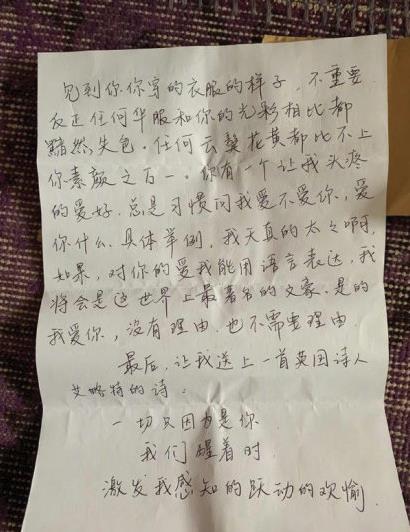 见到你你穿的衣服的样子，不重要
反正任何华服和你的光彩相比都
黯然失色。任何云鬓花黄都比不上
你素颜之百一。你有一个让我头疼
的爱好，总是习惯问我爱不爱你，爱
你什么，具体举例，我天真的太太啊，
如果，对你的爱我能用语言表达，我
将会是这世界上最著名的文豪。是的
我爱你，没有理由，也不需要理由。
最后，让我送上一首英国诗人
艾略特的诗：
一切只因为是你
我们醒着时
激发我感知的跃动的欢愉